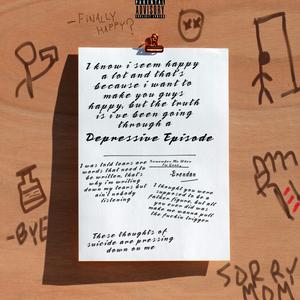 -FINALLY HAPPY?
PARENTAL
ADVISORY
EXPLICIT CONTENT
I know i seem happy
a lot and that's
because i want to
make you guys
happy, but the truth
is i've been going
through a
Depressive Episode
I was told tears are
words that need to
be written, that's
why i'm writing
down my tears but
ain't nobody
listening
Remember Me When
I'm Gone
-Brendan
I thought you were
supposed to be a
father figure, but all
you ever did was
make me wanna pull
the fuckin trigger
These thoughts of
suicide are pressing
down on me
-BYE
SORRY
MOM